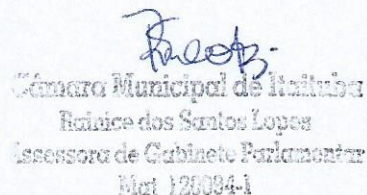 Câmara Municipal de Itaituba
dos Santos Lopes
Assessora de Gabinete Parlamentar
Mat 120094-1